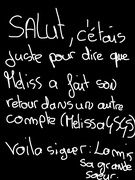 SALUT, c'étais
juste pour dire que
Meliss a fait son
retour dans un autre
compte (Melissa4545)
Voila signer: Lamis
sa grande
sœur.